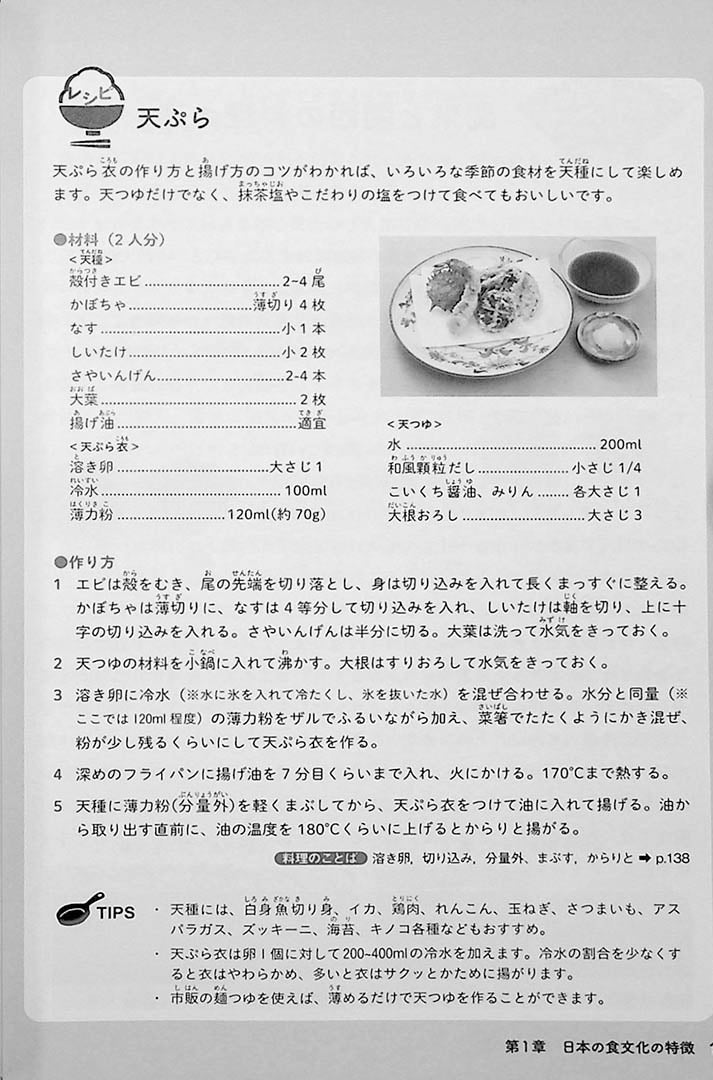 レシピ
天ぷら
天ぷら衣の作り方と揚げ方のコツがわかれば、いろいろな季節の食材を天種にして楽しめ
ます。天つゆだけでなく、抹茶塩やこだわりの塩をつけて食べてもおいしいです。
●材料（2人分）
＜天種＞
殻付きエビ……………………………2~4尾
かぼちゃ……………………………薄切り4枚
なす……………………………小1本
しいたけ……………………………小2枚
さやいんげん……………………………2-4本
大葉……………………………2枚
揚げ油……………………………適宜
＜天ぷら衣＞
溶き卵……………………………大さじ1
冷水……………………………100ml
薄力粉……………………………120ml(約70g)
＜天つゆ＞
水……………………………200ml
和風顆粒だし……………………………小さじ1/4
こいくち醤油、みりん………各大さじ1
大根おろし……………………………大さじ3
●作り方
1 エビは殻をむき、尾の先端を切り落とし、身は切り込みを入れて長くまっすぐに整える。
かぼちゃは薄切りに、なすは4等分して切り込みを入れ、しいたけは軸を切り、上に十
字の切り込みを入れる。さやいんげんは半分に切る。大葉は洗って水気をきっておく。
2 天つゆの材料を小鍋に入れて沸かす。大根はすりおろして水気をきっておく。
3 溶き卵に冷水（※水に氷を入れて冷たくし、氷を抜いた水）を混ぜ合わせる。水分と同量（※
ここでは120ml程度）の薄力粉をザルでふるいながら加え、菜箸でたたくようにかき混ぜ、
粉が少し残るくらいにして天ぷら衣を作る。
4 深めのフライパンに揚げ油を7分目くらいまで入れ、火にかける。170℃まで熱する。
5 天種に薄力粉(分量外)を軽くまぶしてから、天ぷら衣をつけて油に入れて揚げる。油か
ら取り出す直前に、油の温度を180℃くらいに上げるとからりと揚がる。
料理のことば 溶き卵，切り込み，分量外、まぶす，からりと ➡ p.138
TIPS
・ 天種には、白身魚切り身、イカ、鶏肉、れんこん、玉ねぎ、さつまいも、アス
パラガス、ズッキーニ、海苔、キノコ各種などもおすすめ。
・ 天ぷら衣は卵1個に対して200~400mlの冷水を加えます。冷水の割合を少なくす
ると衣はやわらかめ、多いと衣はサクッとかために揚がります。
・ 市販の麺つゆを使えば、薄めるだけで天つゆを作ることができます。
第1章 日本の食文化の特徴